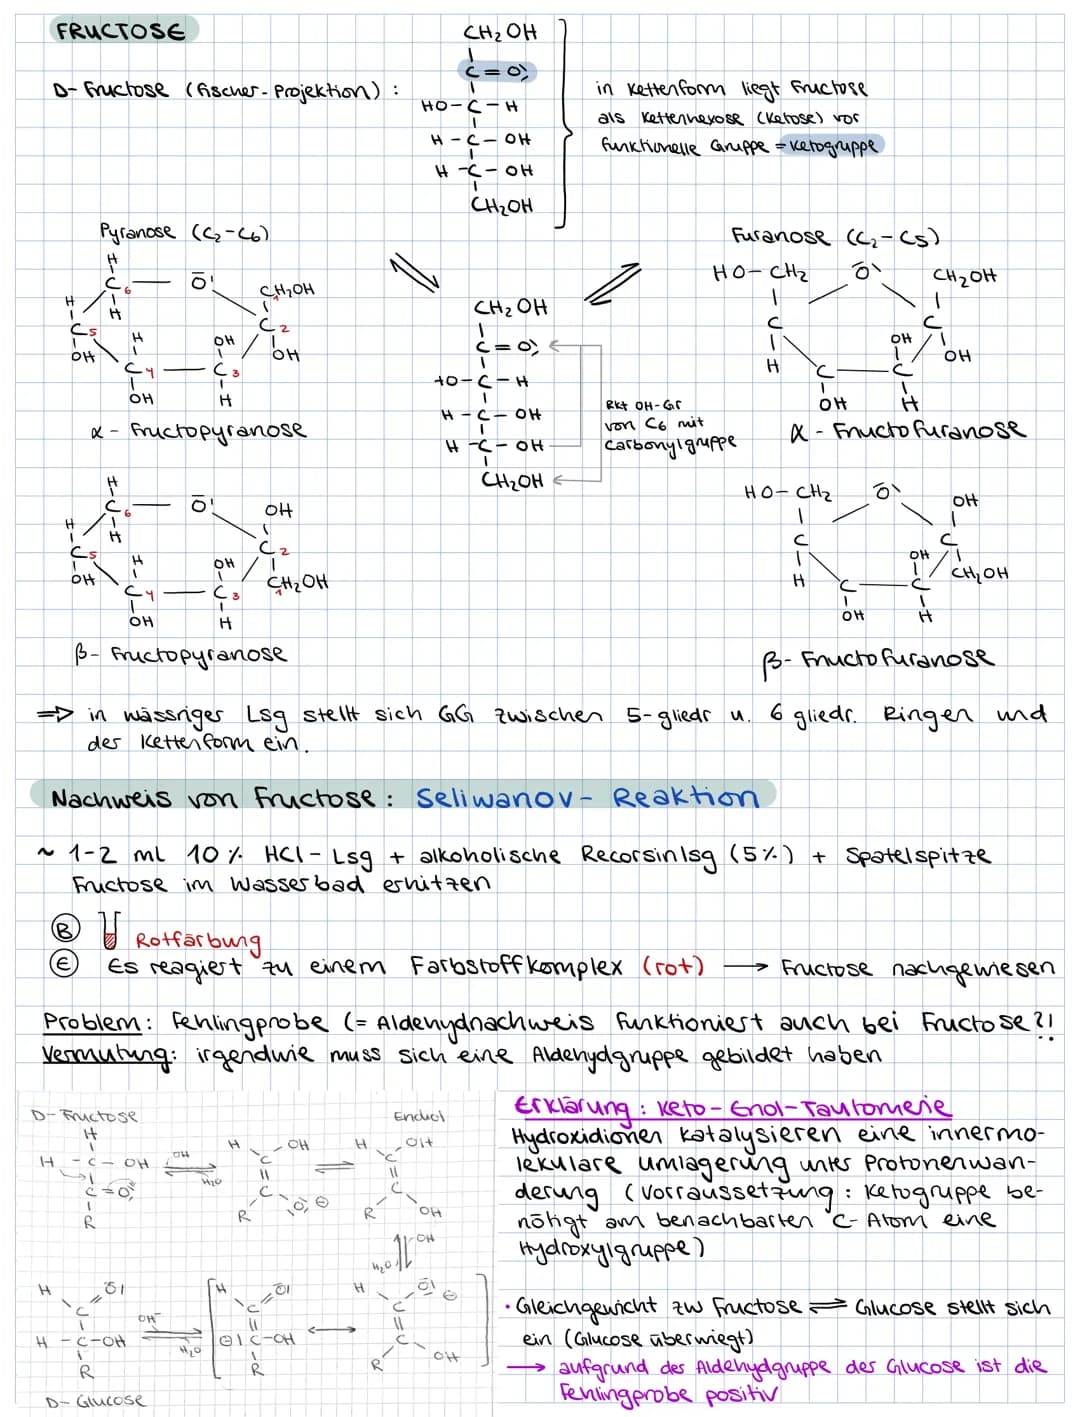 FRUCTOSE
D-Fructose (Fischer-Projektion) :
CH₂OH
C=O
HO-C-H
H-C-OH
H-C-OH
CH₂OH
in Kettenform liegt Fructose
als Kettenhexose (Ketose) vor
funktionelle Gruppe = Ketogruppe
Pyranose (C₂-C6)
H
C6 — O
CH₂OH
1
H
H
C5
C2
OH
H
OH
OH
C4 — C3
OH
H
α - Fructopyranose
CH₂OH
C=O
HO-C-H
H-C-OH
H-C-OH
CH₂OH
Rkt OH-Gr
von C6 mit
Carbonylgruppe
Furanose (C₂-C5)
HO-CH₂
O
CH₂OH
C
C
OH
OH
H
C — C
OH
H
α - Fructofuranose
H
C6 — O
OH
H
H
C5
C2
OH
H
OH
CH₂OH
1
C4 — C3
OH
H
β- Fructopyranose
HO-CH₂
O
OH
C
C
OH
CH₂OH
H
C — C
OH
H
β- Fructofuranose
=> in wässriger Lsg stellt sich GG zwischen 5-gliedr u. 6 gliedr. Ringen und
der Kettenform ein.
Nachweis von Fructose: Seliwanov- Reaktion
~ 1-2 ml 10% HCl-Lsg + alkoholische Recorsinlsg (5%) + Spatelspitze
Fructose im Wasserbad erhitzen
B Rotfärbung
E Es reagiert zu einem Farbstoffkomplex (rot) → Fructose nachgewiesen
Problem: Fehlingprobe (= Aldehydnachweis funktioniert auch bei Fructose?!
Vermutung: irgendwie muss sich eine Aldehydgruppe gebildet haben
D-Fructose
H
H-C-OH
C=O
R
OH
H₂O
H
OH
C
C
R
O ⊖
Endiol
H
OH
C
C
R
OH
H₂O
OH
H
O
C
H-C-OH
R
D-Glucose
OH⁻
H₂O
H
O
C
⊖ C-OH
R
H
O ⊖
C
C
R
OH
Erklärung: Keto-Enol-Tautomerie
Hydroxidionen katalysieren eine innermo-
lekulare Umlagerung unter Protonenwan-
derung (Vorraussetzung: Ketogruppe be-
nötigt am benachbarten C-Atom eine
Hydroxylgruppe)
· Gleichgewicht zw Fructose ⇌ Glucose stellt sich
ein (Glucose überwiegt)
→ aufgrund der Aldehydgruppe der Glucose ist die
Fehlingprobe positiv